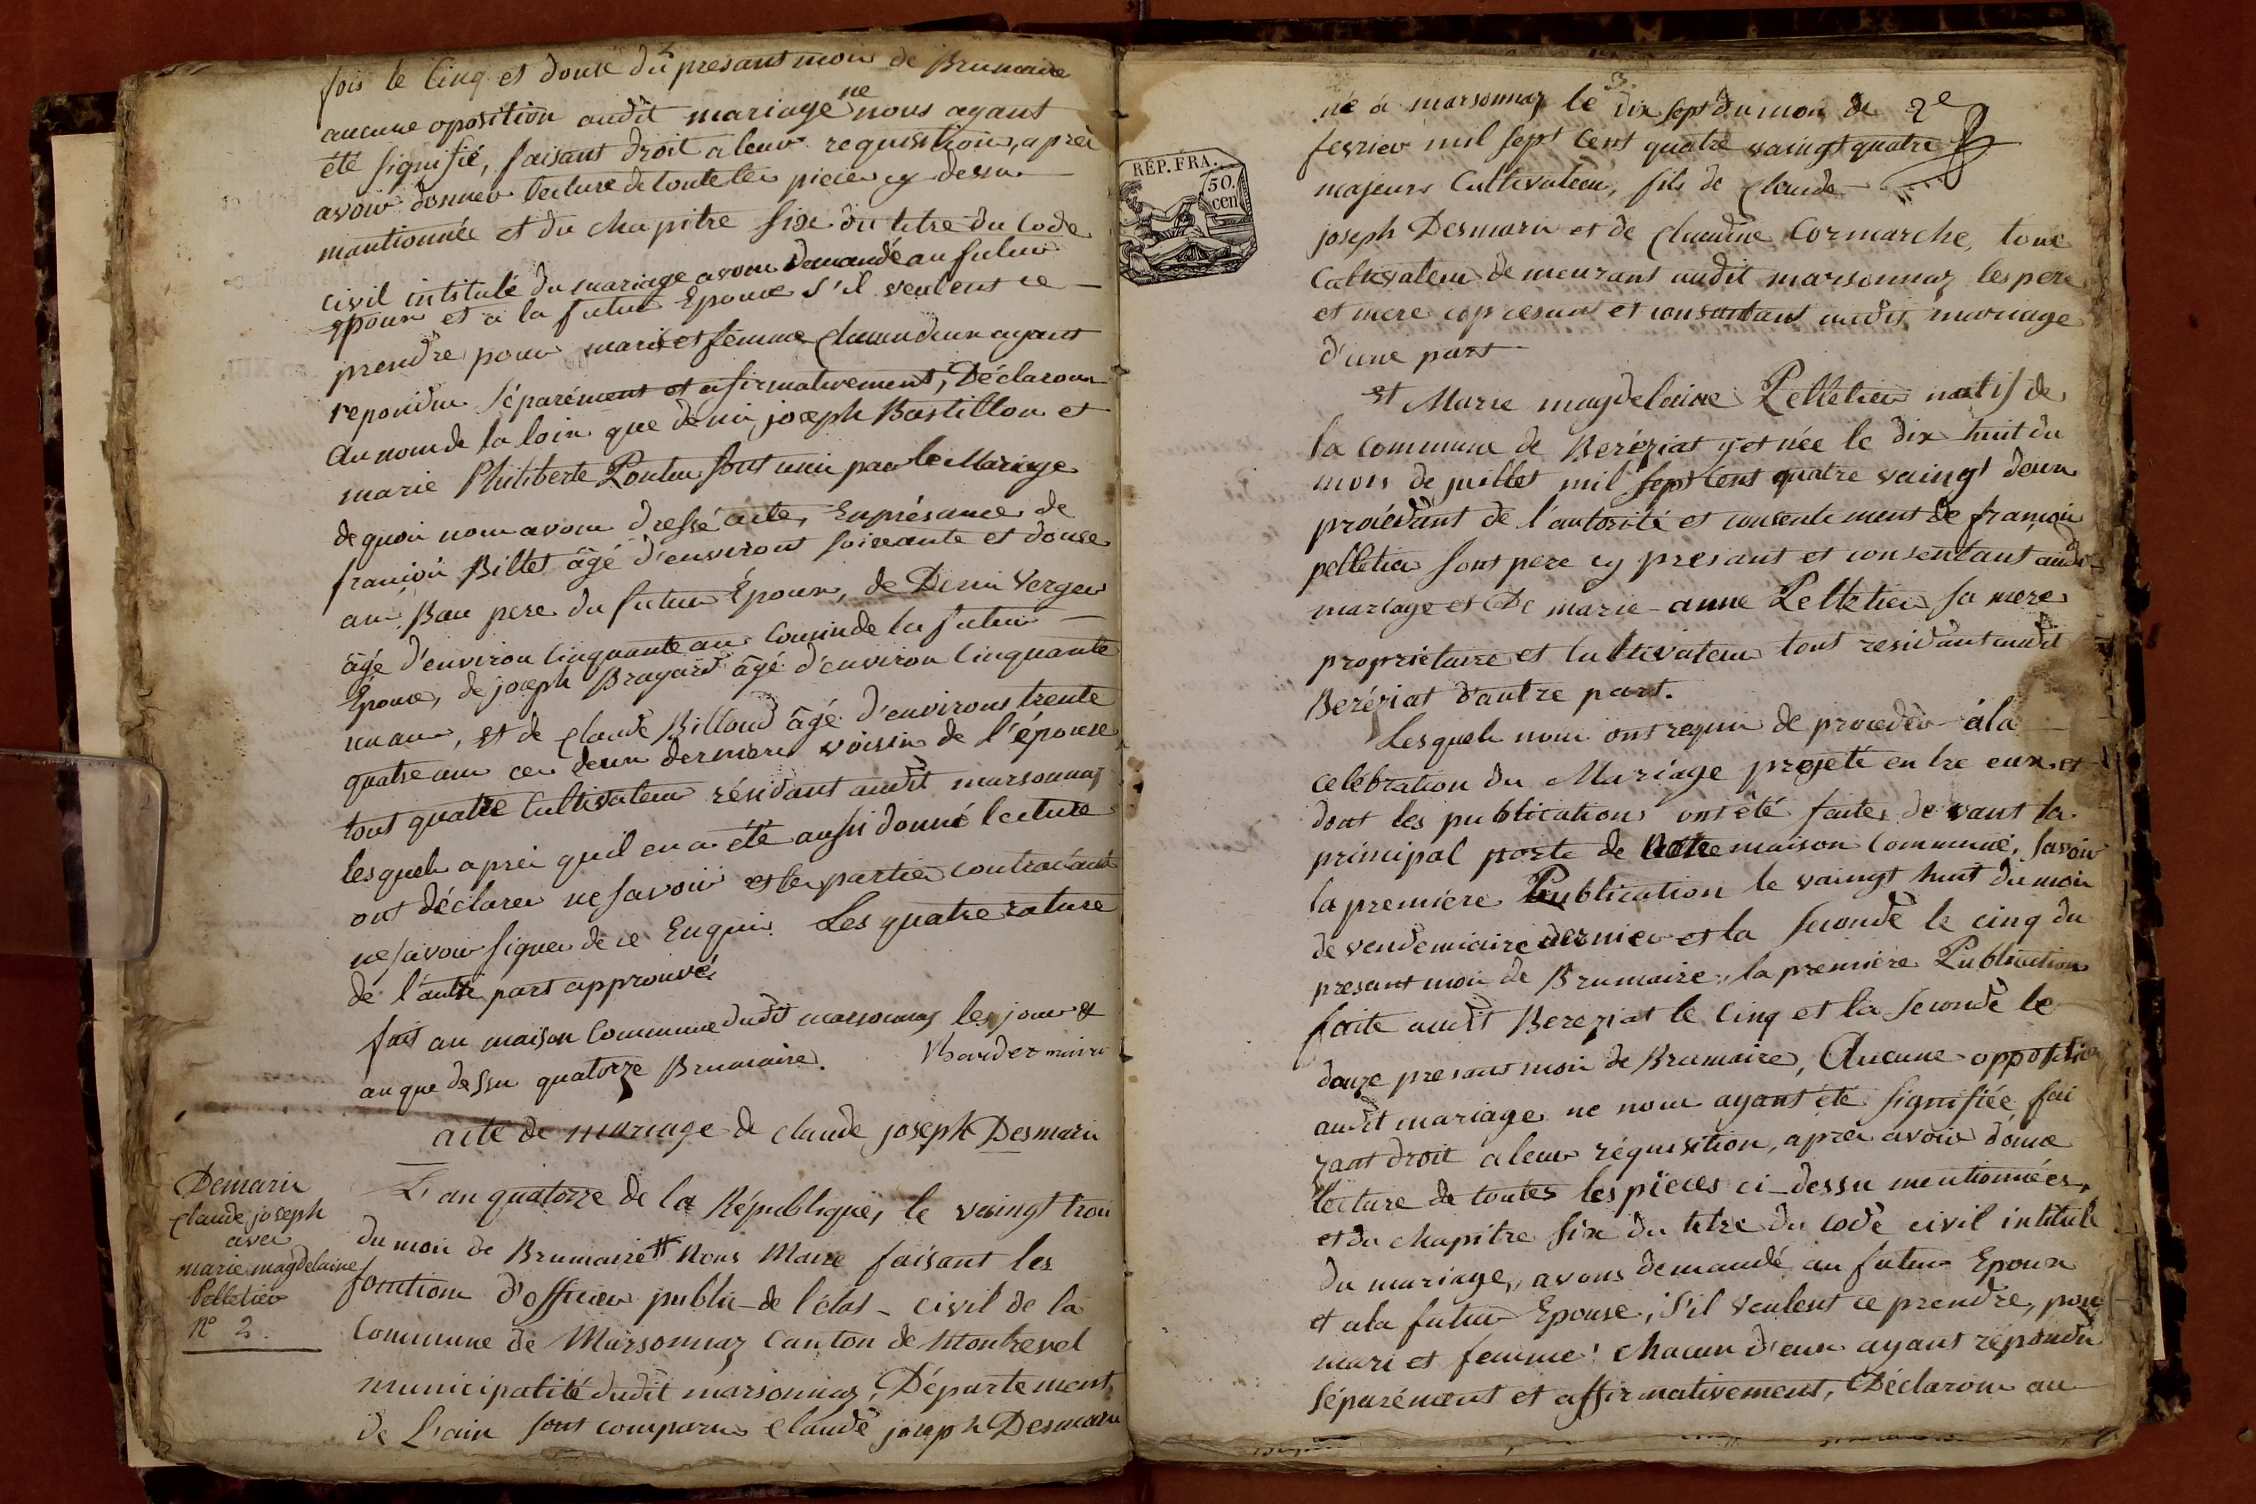 fois le cinq et douse du presant mois de Brumaire
aucune oposition audit mariage ne nous ayant
été signifié, faisant droit a leur requisition, aprei
avoir donner lecture de toute lei pieces cy dessu
mantionnée et du chapitre six du titre du Code
civil intitulé du mariage avons demandé au futur
Epoux et a la futur Epouse s'il veulent ce
prendre pour marie et femme chacun deux ayant
repondu séparément et afirmativement, Déclarons
au nom de la loix que deni joseph Bastillon et
marie Philiberte Pontu sont uni par le Mariage
de quoi nous avons dressé acte, En présance de
françoi Billet âgé d'environt soixante et douse
an Bau pere du futur Époux, de Deni Verger
âgé d'environ cinquante an cousin de la futur
Épouse, de joseph Brayard âgé d'environ cinquante
un an, et de claude Billoud âgé d'environs trente
quatre ans ces deux dernier voisin de l'épouse
tout quatre Cultivateur résidant audit marsonnaz
lesquels aprei qu'il en a été aussi donné lecture
ont déclarer ne savoir et les partie contractant
ne savoir signer de ce Enquis. Les quatre rature
de l'autre part approuvé
fait au maison Commune dudit marsonnaz les jour &
an que dessu quatorze Brumaire. maire
acte de mariage de claude joseph Desmari
Demari
claude joseph
avec
marie magdelaine
Pelletier
N° 2.
L'an quatorze de la République, le vaingt troi
du moi de Brumaire # Nous Maire faisant les
fonctions d'officier public de l'état civil de la
Commune de Marsonnaz Canton de Montrevel
municipalité dudit marsonnaz, Département
de L'ain sont comparus claude joseph Desmari
RÉP. FRA.
50.
cen
né à marsonnaz le dix sept du moi de 2e
fevrier mil sept cent quatre vaingt quatre
majeurs Cultivateur, fils de claude
joseph Desmari et de claudine Cormarche, tous
Cultivateur demeurant audit marsonnaz les pere
et mere cy presant et consantant audit mariage
d'une part
et Marie magdelaine Pelletier natif de
la commune de Beréziat y et née le dix huit du
mois de juillet mil sept cent quatre vaingt deux
procédant de l'autorité et consentement de françoi
pelletier sont pere cy presant et consentant audit
mariage et De marie anne Pelletier sa mere
proprietaire et cultivateur tout residant audit
Beréziat d'autre part.
Lesquels nous ont requi de proceder à la
celébration du Mariage projeté entre eux et
dont les publications ont été faites devant la
principal porte de Notre maison Commune, savoir
la premiére Publication le vaingt huit du moi
de vendemiaire dernier et la seconde le cinq du
presant moi de Brumaire, la premiére Publication
faite audit Bereziat le cinq et la seconde le
douze presant moi de Brumaire, Aucune opposition
audit mariage ne nous ayant été signifiée fai
zant droit a leur réquisition, aprei avoir donné
lecture de toutes les pièces ci-dessu mentionnées,
et du chapitre six du titre du Code civil intitulé
du mariage, avons demandé au futur Epoux
et a la futur Epouse, s'il veulent ce prendre pour
mari et femme, chacun d'eux ayant répondu
séparément et affirmativement, Déclarons au